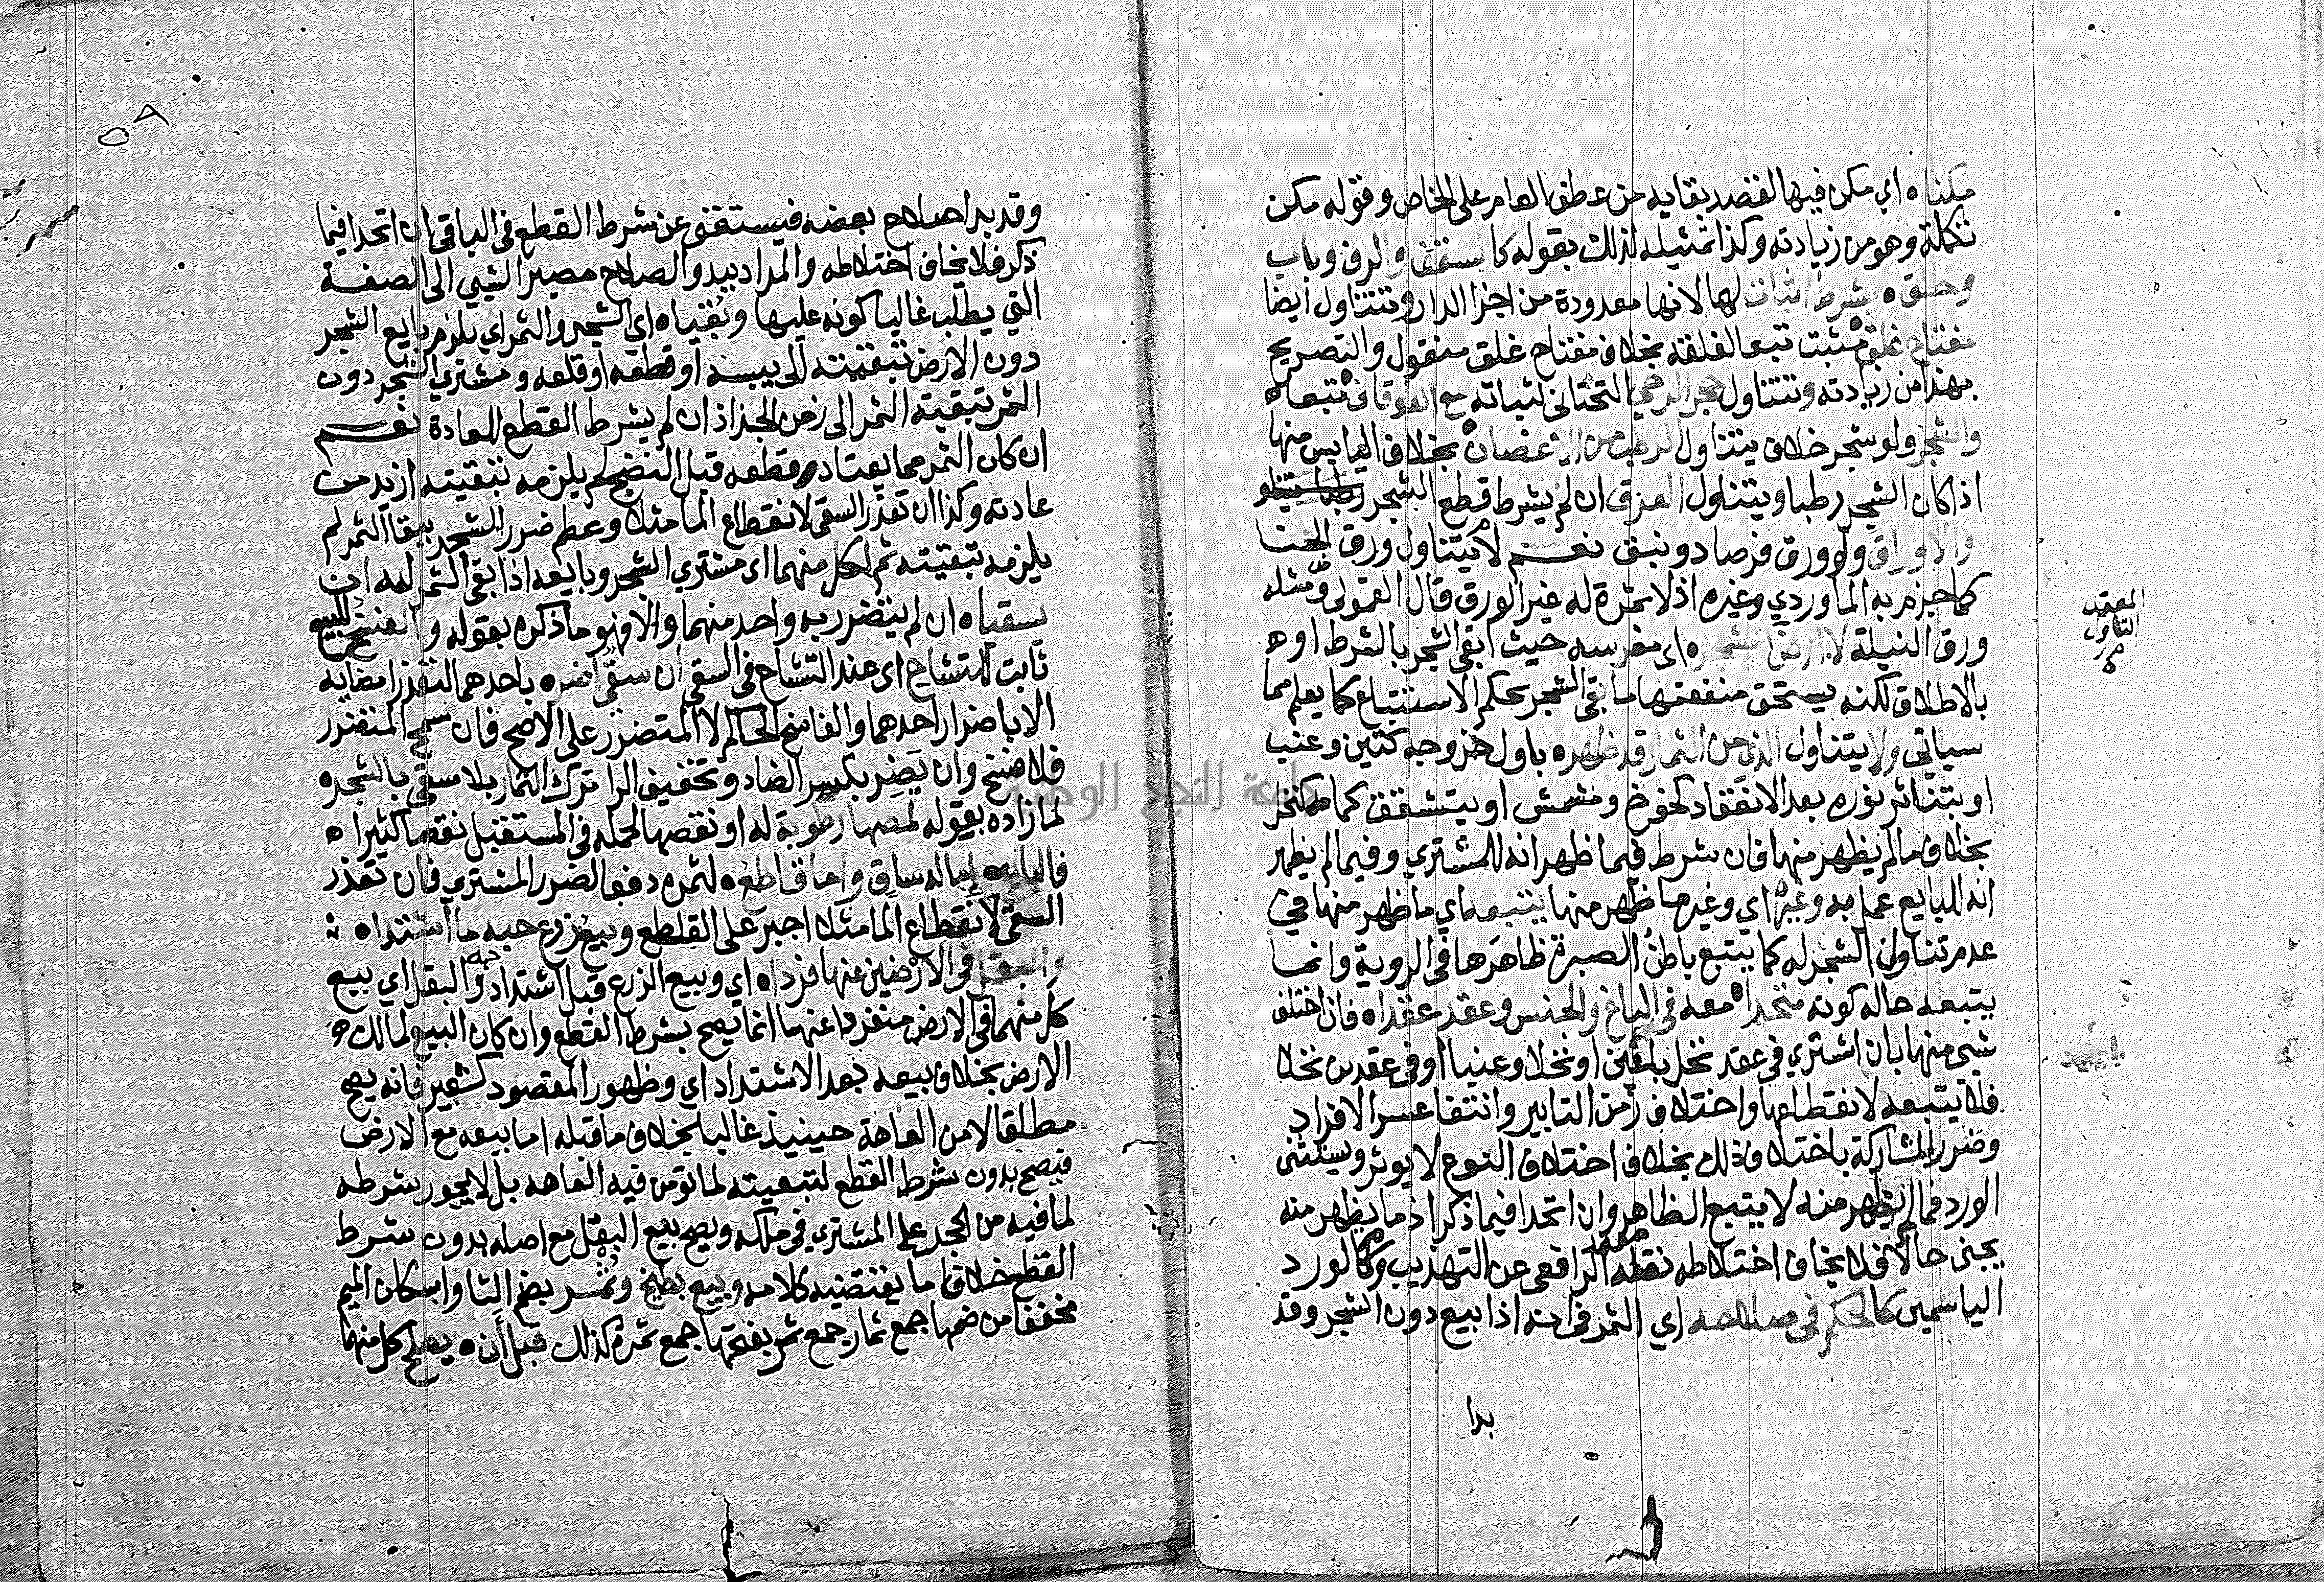 مكناه اي مكن فيها لقصد بقايه من عطف العام على الخاص وقوله مكن
تكملة وهو من زيادته وكذا تمثيله لذلك بقوله كالسقف والرف وباب
وحلق ه بشرط اثبات لها لانها معدودة من اجزا الدار وتتناول ايضا
مفتاح غلق مثبت تبعا لغلقه بخلاف مفتاح غلق منقول والتصريح
بهذا من زيادته وتتناول حجر الرحى التحتاني لثباته مع الفوقاني تبعاه
والشجر ولو شجر خلاف يتناول الرطب من الاغصان بخلاف اليابس منها
اذا كان الشجر رطبا ويتناول العرق ان لم يشرط قطع الشجر
والاوراق ولو ورق فرصاد ونبق نعم لا يتناول ورق الحنا
كما جزم به الماوردي وغيره اذ لا ثمرة له غير الورق قال القمولى ومثله
ورق النيلة لا ارض الشجره اى مغرسه حيث ابقى الشجر بالشرط اوه
بالاطلاق لكنه يستحق منفعتها ما بقى الشجر بحكم الاستتباع كما يعلم مما
سياتي ولا يتناول الذى من الثمار قد ظهره باول خروجه كتين وعنب
او بتناثر نوره بعد الانعقاد كخوخ ومشمش او بتشقق كمام كنخل
بخلاف ما لم يظهر منها فان شرط فيما ظهر انه للمشتري وفيما لم يظهر
انه للبايع عمل به وغيرُ اي وغير ما ظهر منها يتبعه اي ما ظهر منها في
عدم تناول الشجر له كما يتبع باطنُ الصبرة ظاهرَها في الروية وانما
يتبعه حاله كونه متحدا معه في الباغ والجنس وعقد عقداه فان اختلف
شي منها بان اشتري في عقد نخل باغين او نخلا وعنبا او في عقدين نخلا
فلا يتبعه لانقطاعها واختلاف زمن التابير وانتفا عسر الافراد
وضرر المشاركة باختلاف ذلك بخلاف اختلاف النوع لا يوثر ويستثنى
الورد فما لم يظهر منه لا يتبع الظاهر وان اتحدا فيما ذكر اذ ما يظهر منه
يجنى حالا فلا يخاف اختلاطه نقله الرافعى عن التهذيب وكالورد
الياسمين كالحكم في صلاحه اي الثمر في انه اذا بيع دون الشجر وقد
بدا
المعتمد
التناول
م ر
٥٨
وقد بدا صلاح بعضه فيستغنى عن شرط القطع في الباقي ان اتحدا فيما
ذكر فلا يخاف اختلاطه والمراد ببدو الصلاح مصير الشيي الى الصفة
التي يطلب غالبا كونه عليها وبُقياه اي الشجر والثمر اي يلزم بايع الشجر
دون الارض تبقيته الى يبسه او قطعه او قلعه ومشتري الشجر دون
الثمر تبقية الثمر الى زمن الجذاذ ان لم يشرط القطع للعادة نعم
ان كان الثمر مما يعتاد قطعه قبل النضج لم يلزمه تبقيته ازيد من
عادته وكذا ان تعذر السقى لانقطاع الما مثلا وعظم ضرر الشجر ببقا الثمر لم
يلزمه تبقيته ثم لكل منهما اى مشتري الشجر وبايعه اذا بقى الثمر له ان
يسقياه ان لم يتضرر به واحد منهما والا فهو ما ذكره بقوله وافسخ البيع
ثابت للتشاح اى عند التشاح في السقى ان سقي اضره باحدهما لتعذر امضايه
الا باضرار احدهما والفاسخ الحاكم لا المتضرر على الاصح فان سمح المتضرر
فلا فسخ وان يَضِر بكسر الضاد وتخفيف الرا ترك الثمار بلا سقي بالشجره
لما زاده بقوله لمصها رطوبة له او نقصها لحمله في المستقبل نقصا كثيراه
فالبايع اما له ساق واما قاطع ه لثمره دفعا لضرر المشتري فان تعذر
السقى لانقطاع الما مثلا اجبر على القطع وبيع زرع حبه ما اشتداه
والبقل في الارضين عنها فرداه اي وبيع الزرع قبل اشتداد حبه والبقل اي بيع
كل منهما في الارض منفردا عنها انما يصح بشرط القطع وان كان البيع لمالك ه
الارض بخلاف بيعه بعد الاشتداد اي وظهور المقصود كشعير فانه يصح
مطلقا لامن العاهة حينيذ غالبا بخلاف ما قبله اما بيعه مع الارض
فيصح بدون شرط القطع لتبعيته لما تومن فيه العاهه بل لا يجوز شرطه
لما فيه من الحجر على المشتري في ملكه ويصح بيع البقل مع اصله بدون شرط
القطع خلاف ما يقتضيه كلامه وبيع بطيخ وثُمْر بضم الثا واسكان الميم
مخففا من ضمها جمع ثمار جمع ثمر بفتحها جمع ثمرة كذلك قبل أن ه يصلح كل منهما
جامعة النجاح الوطنية